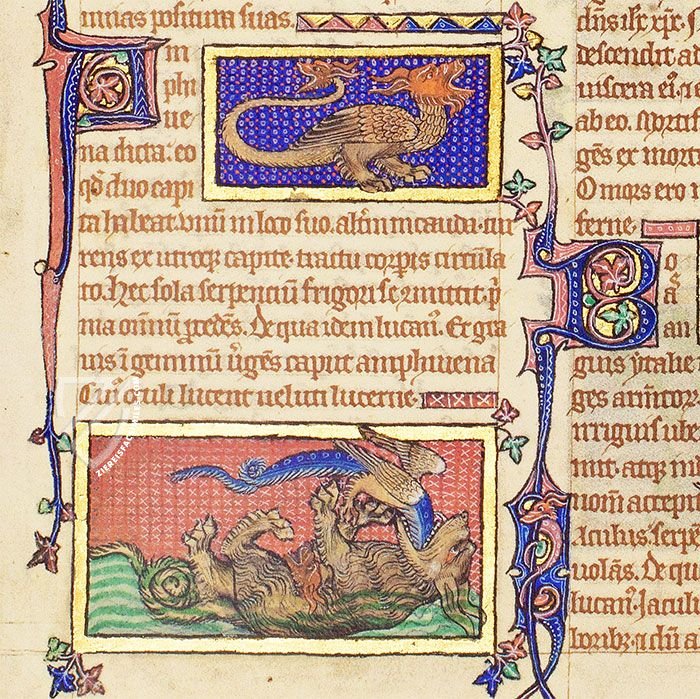 nuas positum suas.
In
phi
ue
na dicta: eo
qđ duo capi
ta habeat. unum in loco suo. altm̄ in cauda. cur
rens ex utroq; capite. tractu corpis circula
to. Hec sola serpenciū frigori se cōmittit. p̄
ma omniū p̄cedens. De qua idem lucan⁹. Et gra
uis ī geminum v̄gens caput amphivena
Cui⁹ oculi lucent veluti lucerne.
dn̄s
descendit ad
uiscera ei⁹.
ab eo. Mortif
gēs ex morti
O mors ero
ferne.
o
au
guis ytalie
ges
irriguis ube
mit. atq;
nom̄ accep
Aculus serpe
uolās. De qu
lucan⁹. Iaculi
ZIEREIS FACSIMILES